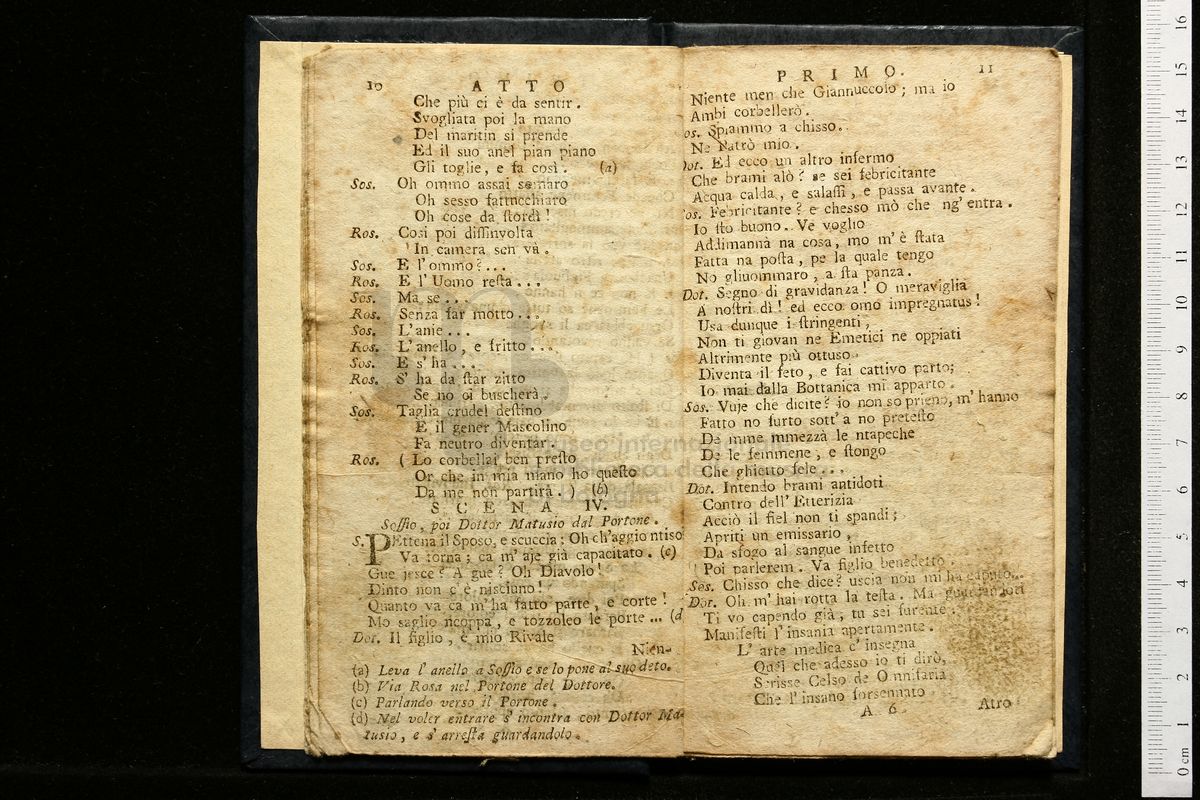 10 ATTO
Che più ci è da sentir.
Svogliata poi la mano
Del maritin si prende
Ed il suo anel pian piano
Gli toglie, e fa così. (a)
Sos. Oh ommo assai somaro
Oh sesso fattucchiaro
Oh cose da stordì!
Ros. Così poi dissinvolta
In camera sen và.
Sos. E l'ommo?...
Ros. E l'Uomo resta...
Sos. Ma se...
Ros. Senza far motto...
Sos. L'anie...
Ros. L'anello, e fritto...
Sos. E s'ha...
Ros. S'ha da star zitto
Se no oi buscherà.
Sos. Taglia crudel destino
E il gener Mascolino
Fa neutro diventar.
Ros. (Lo corbellai ben presto
Or che in mia mano ho questo
Da me non partirà.) (b)
SCENA IV.
Sossio, poi Dottor Matusio dal Portone.
S. PEttena il Sposo, e scuccia; Oh ch'aggio ntiso
Va torna; ca m'aje già capacitato. (c)
Gue jesce? A gue? Oh Diavolo!
Dinto non c'è nisciuno!
Quanto va ca m'ha fatto parte, e corte!
Mo saglio ncoppa, e tozzoleo le porte... (d
Dot. Il figlio, è mio Rivale
Nien-
(a) Leva l'anello a Sossio e se lo pone al suo deto.
(b) Via Rosa nel Portone del Dottore.
(c) Parlando verso il Portone.
(d) Nel voler entrare s'incontra con Dottor Ma-
tusio, e s'arresta guardandolo.
PRIMO. 11
Niente men che Giannuccolo; ma io
Ambi corbellerò.
os. Spiammo a chisso.
Ne Patrò mio.
Dot. Ed ecco un altro infermo
Che brami alò? se sei febricitante
Acqua calda, e salassi, e passa avante.
os. Febricitante? e chesso mò che ng'entra.
Io sto buono. Ve voglio
Addimannà na cosa, mo m'è stata
Fatta na posta, pe la quale tengo
No gliuommaro, a sta panza.
Dot. Segno di gravidanza! O meraviglia
A nostri dì! ed ecco omo impregnatus!
Usa dunque i stringenti,
Non ti giovan ne Emetici ne oppiati
Altrimente più ottuso
Diventa il feto, e fai cattivo parto;
Io mai dalla Bottanica mi apparto.
Sos. Vuje che dicite? io non so prieno, m'hanno
Fatto no furto sott'a no pretesto
De mme mmezzà le ntapeche
De le femmene, e stongo
Che ghietto fele...
Dot. Intendo brami antidoti
Contro dell'Etterizia
Acciò il fiel non ti spandi;
Apriti un emissario,
Da sfogo al sangue infetto
Poi parlerem. Va figlio benedetto.
Sos. Chisso che dice? uscia non mi ha caputo...
Dot. Oh m'hai rotta la testa. Ma guardandoti
Ti vo capendo già, tu sei furente.
Manifesti l'insania apertamente.
L'arte medica c'insegna
Quel che adesso io ti dirò,
Scrisse Celso de Omnifaria
Che l'insano forsennato
A 6 Atro